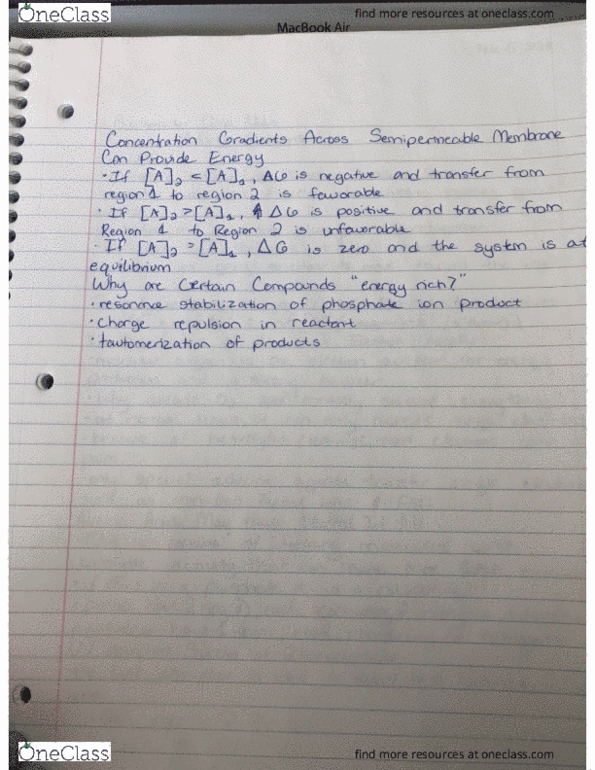 OneClass
find more resources at oneclass.com
MacBook Air
Concentration Gradients Across Semipermeable Membrane
Can Provide Energy
· If [A]₂ < [A]₁, ΔG is negative and transfer from
region 1 to region 2 is favorable
· If [A]₂ > [A]₁, ΔG is positive and transfer from
Region 1 to Region 2 is unfavorable
· If [A]₂ = [A]₁, ΔG is zero and the system is at
equilibrium
Why are Certain Compounds "energy rich?"
· resonance stabilization of phosphate ion product
· charge repulsion in reactant
· tautomerization of products
OneClass
find more resources at oneclass.com